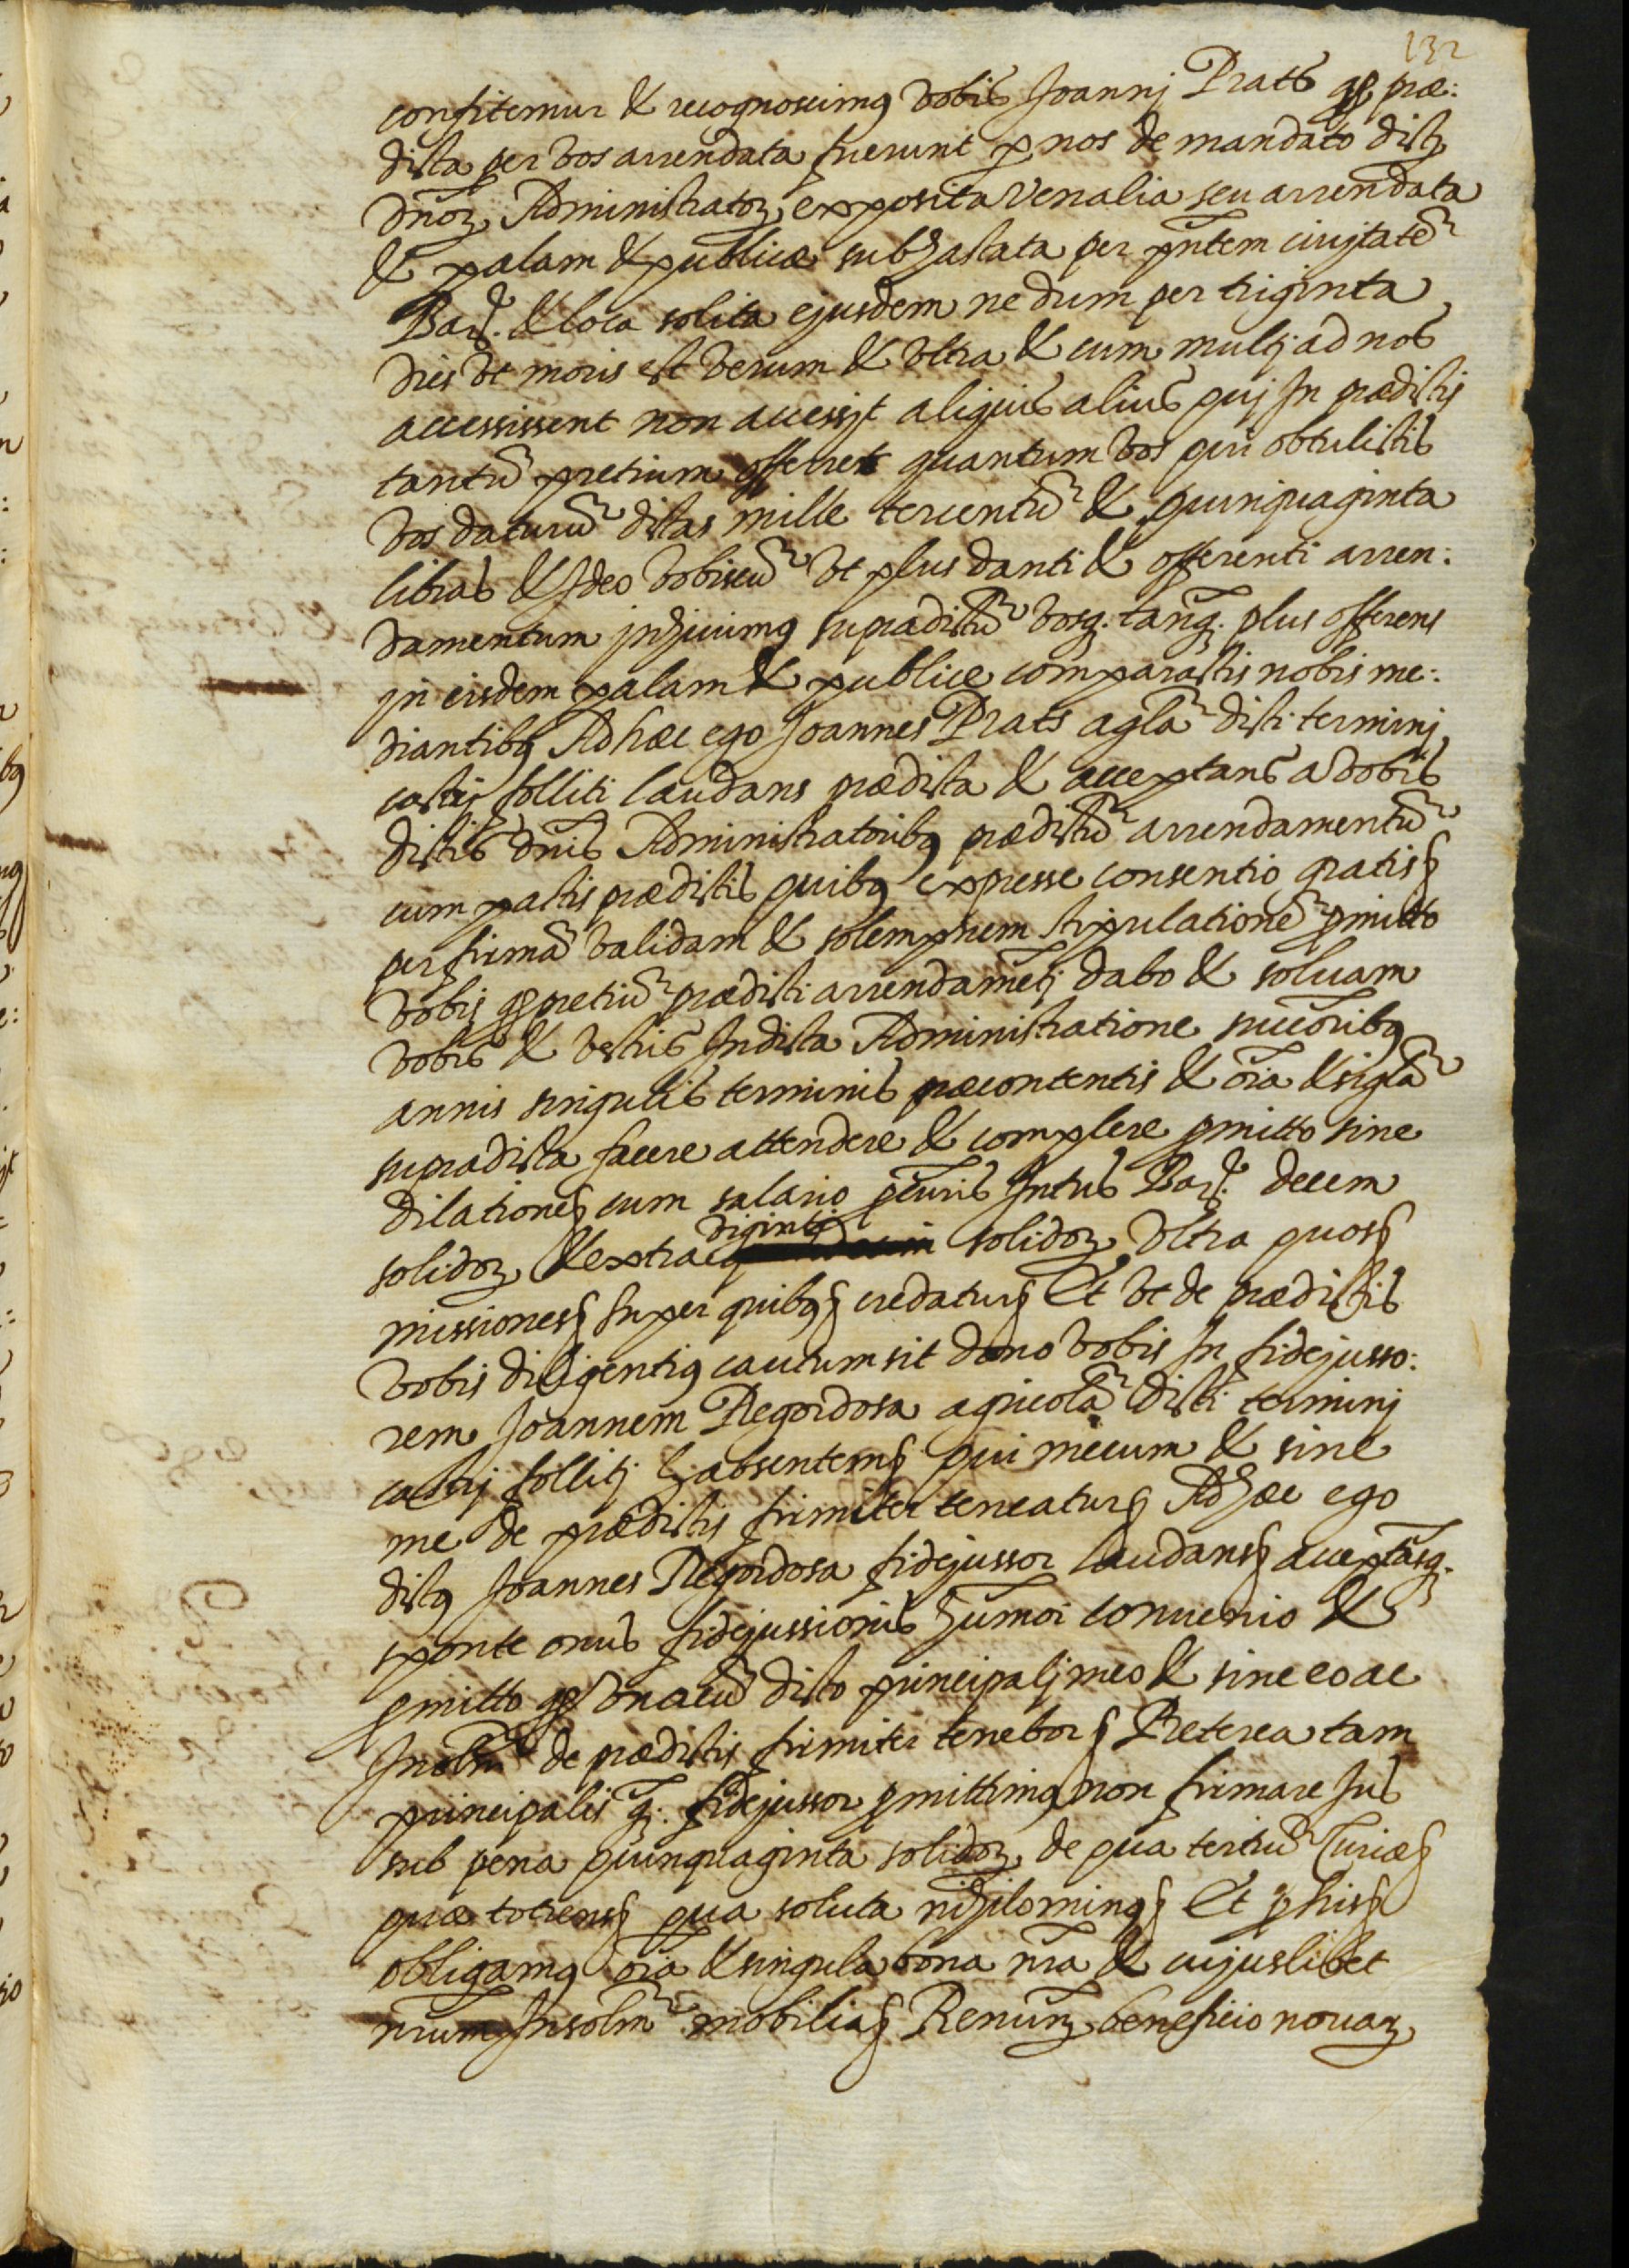 132
confitemur & recognoscimus vobis Joannj Prats qd præ:
dicta per vos arrendata fuerunt p nos de mandato dictz
dnoz Administratoz exposita venalia seu arrendata
& palam & publice subhastata per pntem ciujtatē
Barc. & loca solita ejusdem nedum per triginta
dies vt moris est verum & vltra & cum multj ad nos
accessissent non accessjt aliquis alius quj In prædictis
tantū pretium offerret quantum vos qui obtulistis
vos daturū dictas mille tercentū & quinquaginta
libras & Ideo vobiscū vt plus danti & offerenti arren:
damentum jnhiuimus supradictū vosq. tanq. plus offerens
jn eisdem palam & publice comparastis nobis me:
diantibus Ad hæc ego Joannes Prats agla dicti terminj
castrj folliti laudans prædicta & acceptans a vobis
dictis dnis Administratoribus prædictū arrendamentū
cum pactis prædictis quibus expresse consentio gratis§
per firmā validam & solempnem stipulationē pmitto
vobis qd pretiū prædicti arrendametj dabo & soluam
vobis & vestris In dicta Administratione succoribus
annis singulis terminis præcontentis & oia & sigla
supradicta facere attendere & complere pmitto sine
dilatione§ cum salario pcuris Intus Barc. decem
solidoz & extra
vigintj
solidoz vltra quos§
missiones§ super quibus§ credatur§ Et vt de prædictis
vobis diligentius cautum sit dono vobis In fidejusso:
rem Joannem Regordosa agricolā dicti terminj
castrj follitj lz absentem§ qui mecum & sine
me de prædictis firmiter teneatur§ Ad hæc ego
dictus Joannes Regordosa fidejussor laudans§ acceptasq.
sponte onus fidejussionis humoi conuenio &
pmitto qd vnacū dicto principalj meo & sine eo ac
Insolm de prædictis firmiter tenebor§ Preterea tam
principalis q. fidejussor pmittimus non firmare Jus
sub pena quinquaginta solidoz de qua tertiū Curiæ§
quæ totiens§ qua soluta nihilominus§ Et p his§
obligamus oia & singula bona nra & cujuslibet
nrum Insolm mobilia§ Renunz beneficio nouaz